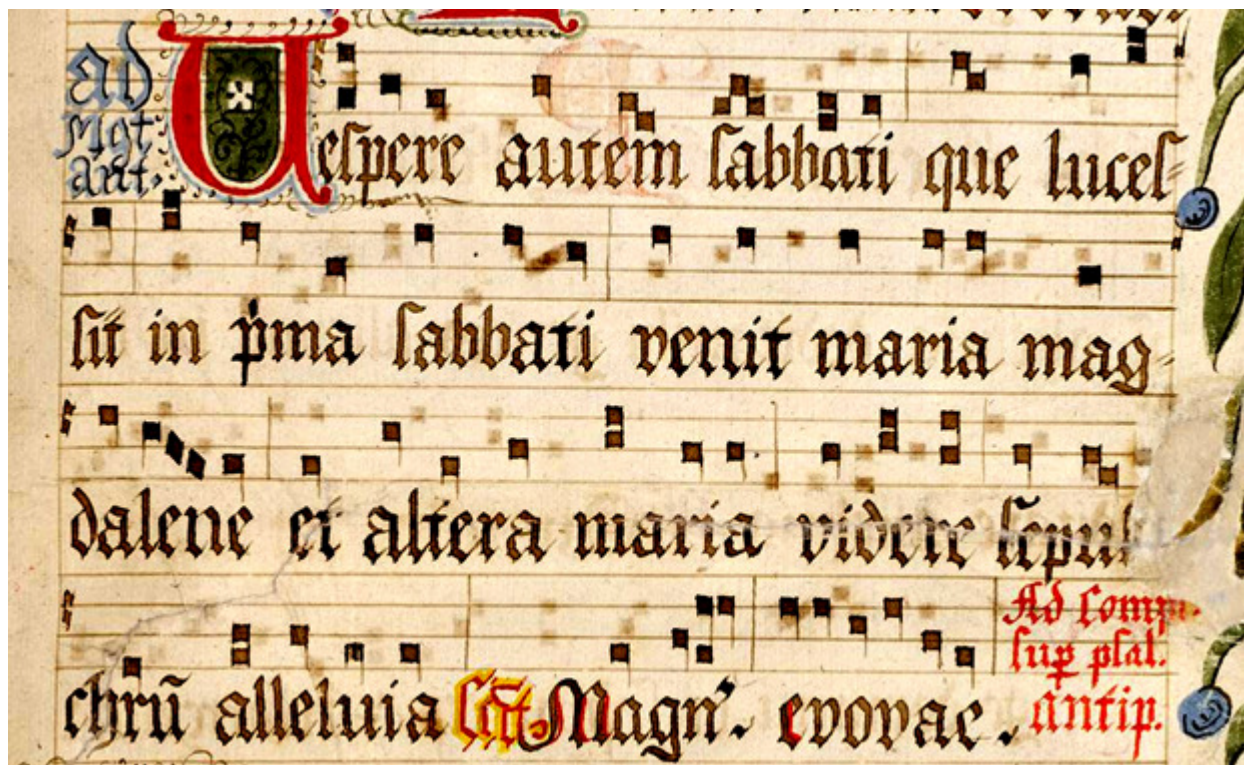 ad
Mgt
ant.
Uespere autem sabbati que luces=
sit in p̍ma sabbati venit maria mag=
dalene et altera maria videre sepul
chrū alleluia Magn̄. evovae.
Ad Comp
sup̱ psal.
antip.